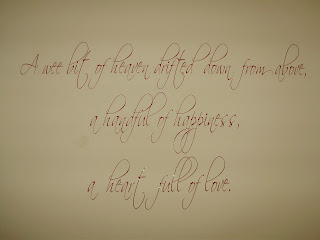 A wee bit of heaven drifted down from above,
a handful of happiness,
a heart full of love.